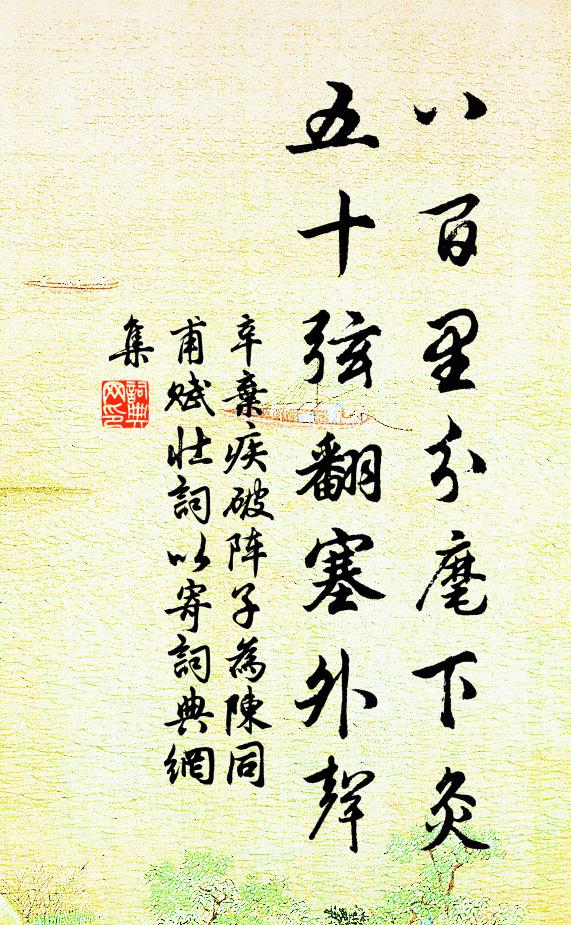 八百里分麾下灸
五十弦翻塞外聲
辛棄疾破阵子為陳同
甫赋壮詞以寄詞典網
集
詞典網印